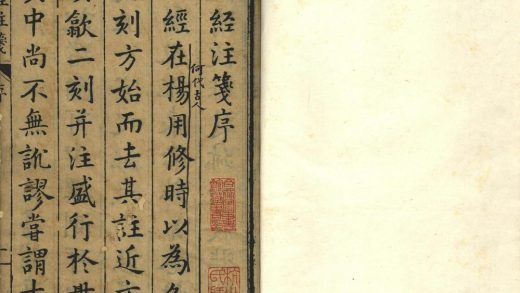 经注箋序
經在楊用修時以為
何代古人
刻方始而去其註近
歙二刻并注盛行於
中尚不無訛謬嘗謂
序